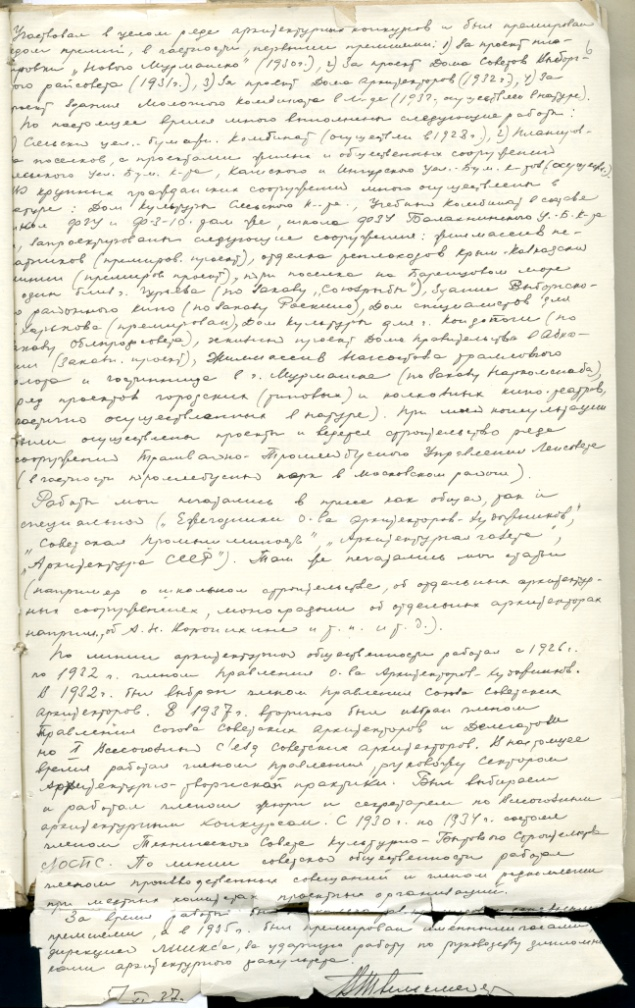 Участвовал в целом ряде архитектурных конкурсов и был премирован
рядом премий, в частности, первыми премиями: 1) За проект пла-
6
нировки „Нового Мурманска" (1930 г.), 2) За проект Дома Советов Выборг-
ского райсовета (1931 г.), 3) За проект Дома архитекторов (1932 г.), 4) За
проект здания Молочного Комбината в Л-де (1932, осуществлено в натуре).
По настоящее время много выполнены следующие работы:
Сясьский цел.. бумажн. Комбинат (осуществлен в 1928 г.), 2) Планиров-
ка поселков, с проектами жилых и общественных сооружений
Сясьского Цел. Бум. К-та, Камского и Ингурского Цел.-Бум. к-тов (осуществ.).
Из крупных гражданских сооружений мною осуществлены в
натуре: Дом культуры Сясьского к-та, Учебный Комбинат в составе
ФЗУ и ФЗ-10. там же, школа ФЗУ Балахнинского Ц.-Б.-К-та
запроектированы следующие сооружения: жилмассив пе-
чатников (премиров. проект), отделка теплоходов Крым-Кавказской
линии (премиров. проект), поселка на Баренцовом море
один близ г. Гурьева (по заказу „Союзрыбы"), здание Выборгско-
го районного кино (по заказу Роскино), Дом специалистов для
г. Харькова (премирован), Дом Культуры для г. Кондопоги (по
заказу), эскизный проект Дома правительства в Абха-
зии (Заказн. проект), Жилмассив тралового
флота и гостинница в г. Мурманске (по заказу Наркомснаба),
ряд проектов городских (типовых) и колхозных кино-театров,
частично осуществленных в натуре). При моей консультации
были осуществлены проекты и ведется строительство ряда
сооружений Трамвайно-Троллейбусного Управления Ленсовета
(в частности троллейбусный парк в Московском районе).
Работы мои печатались в прессе как общей, так и
специальной („Ежегодники О-ва архитекторов-художников",
„Советская Промышленность", „Архитектурная газета",
„Архитектура СССР"). Там же печатались мои статьи
(например о школьном строительстве, об отдельных архитектур-
ных сооружениях, монографии об отдельных архитекторах
наприм., об А. Н. Воронихине и т. п. и т. д.).
По линии архитектурной общественности работал с 1926 г.
по 1932 г. членом правления О-ва Архитекторов-художников.
В 1932 г. был выбран членом правления Союза Советских
архитекторов. В 1937 г. вторично был избран членом
Правления Союза Советских архитекторов и Делегатом
на I Всесоюзный Съезд Советских архитекторов. В настоящее
время работаю членом правления, руководжу сектором
Архитектурно-творческой практики. Был выбираем
и работал членом жюри и секретарем по Всесоюзным
архитектурным Конкурсам. С 1930 г. по 1934 г. состоял
членом Технического Совета Культурно-Бытового Строительства
ЛОСПС. По линии советской общественности работал
членом производственных совещаний и членом
при местных комитетах проектных организаций.
За время работы был
премиями, а в 1935 г. был премирован именными часами,
дирекцией ЛИИКСа, за ударную работу по руководству диплом-
никами архитектурного факультета.